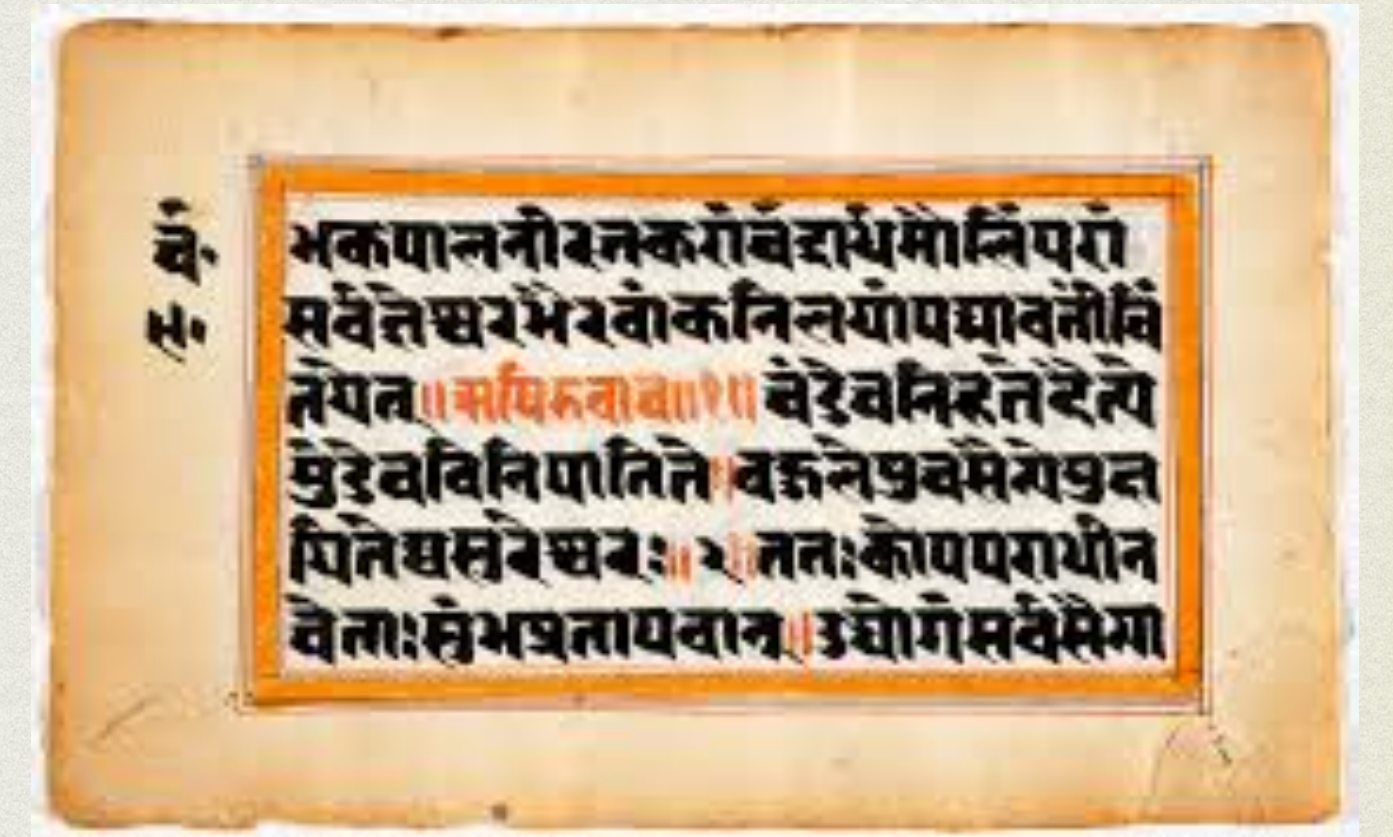 चं॰
भकपालनीरजकरांचंद्रार्धमौलिंपरां
सर्वज्ञेश्वरभैरवांकनिलयांपद्मावतींचिं
तयेत्॥ऋषिरुवाच॥१॥चंडेचनिहतेदैत्ये
मुंडेचविनिपातिते॥बहुलेषुचसैन्येषुक्ष
यितेष्वसुरेश्वरः॥२॥ततःकोपपराधीन
चेताःसुंभप्रतापवान्॥उद्योगंसर्वसैन्या